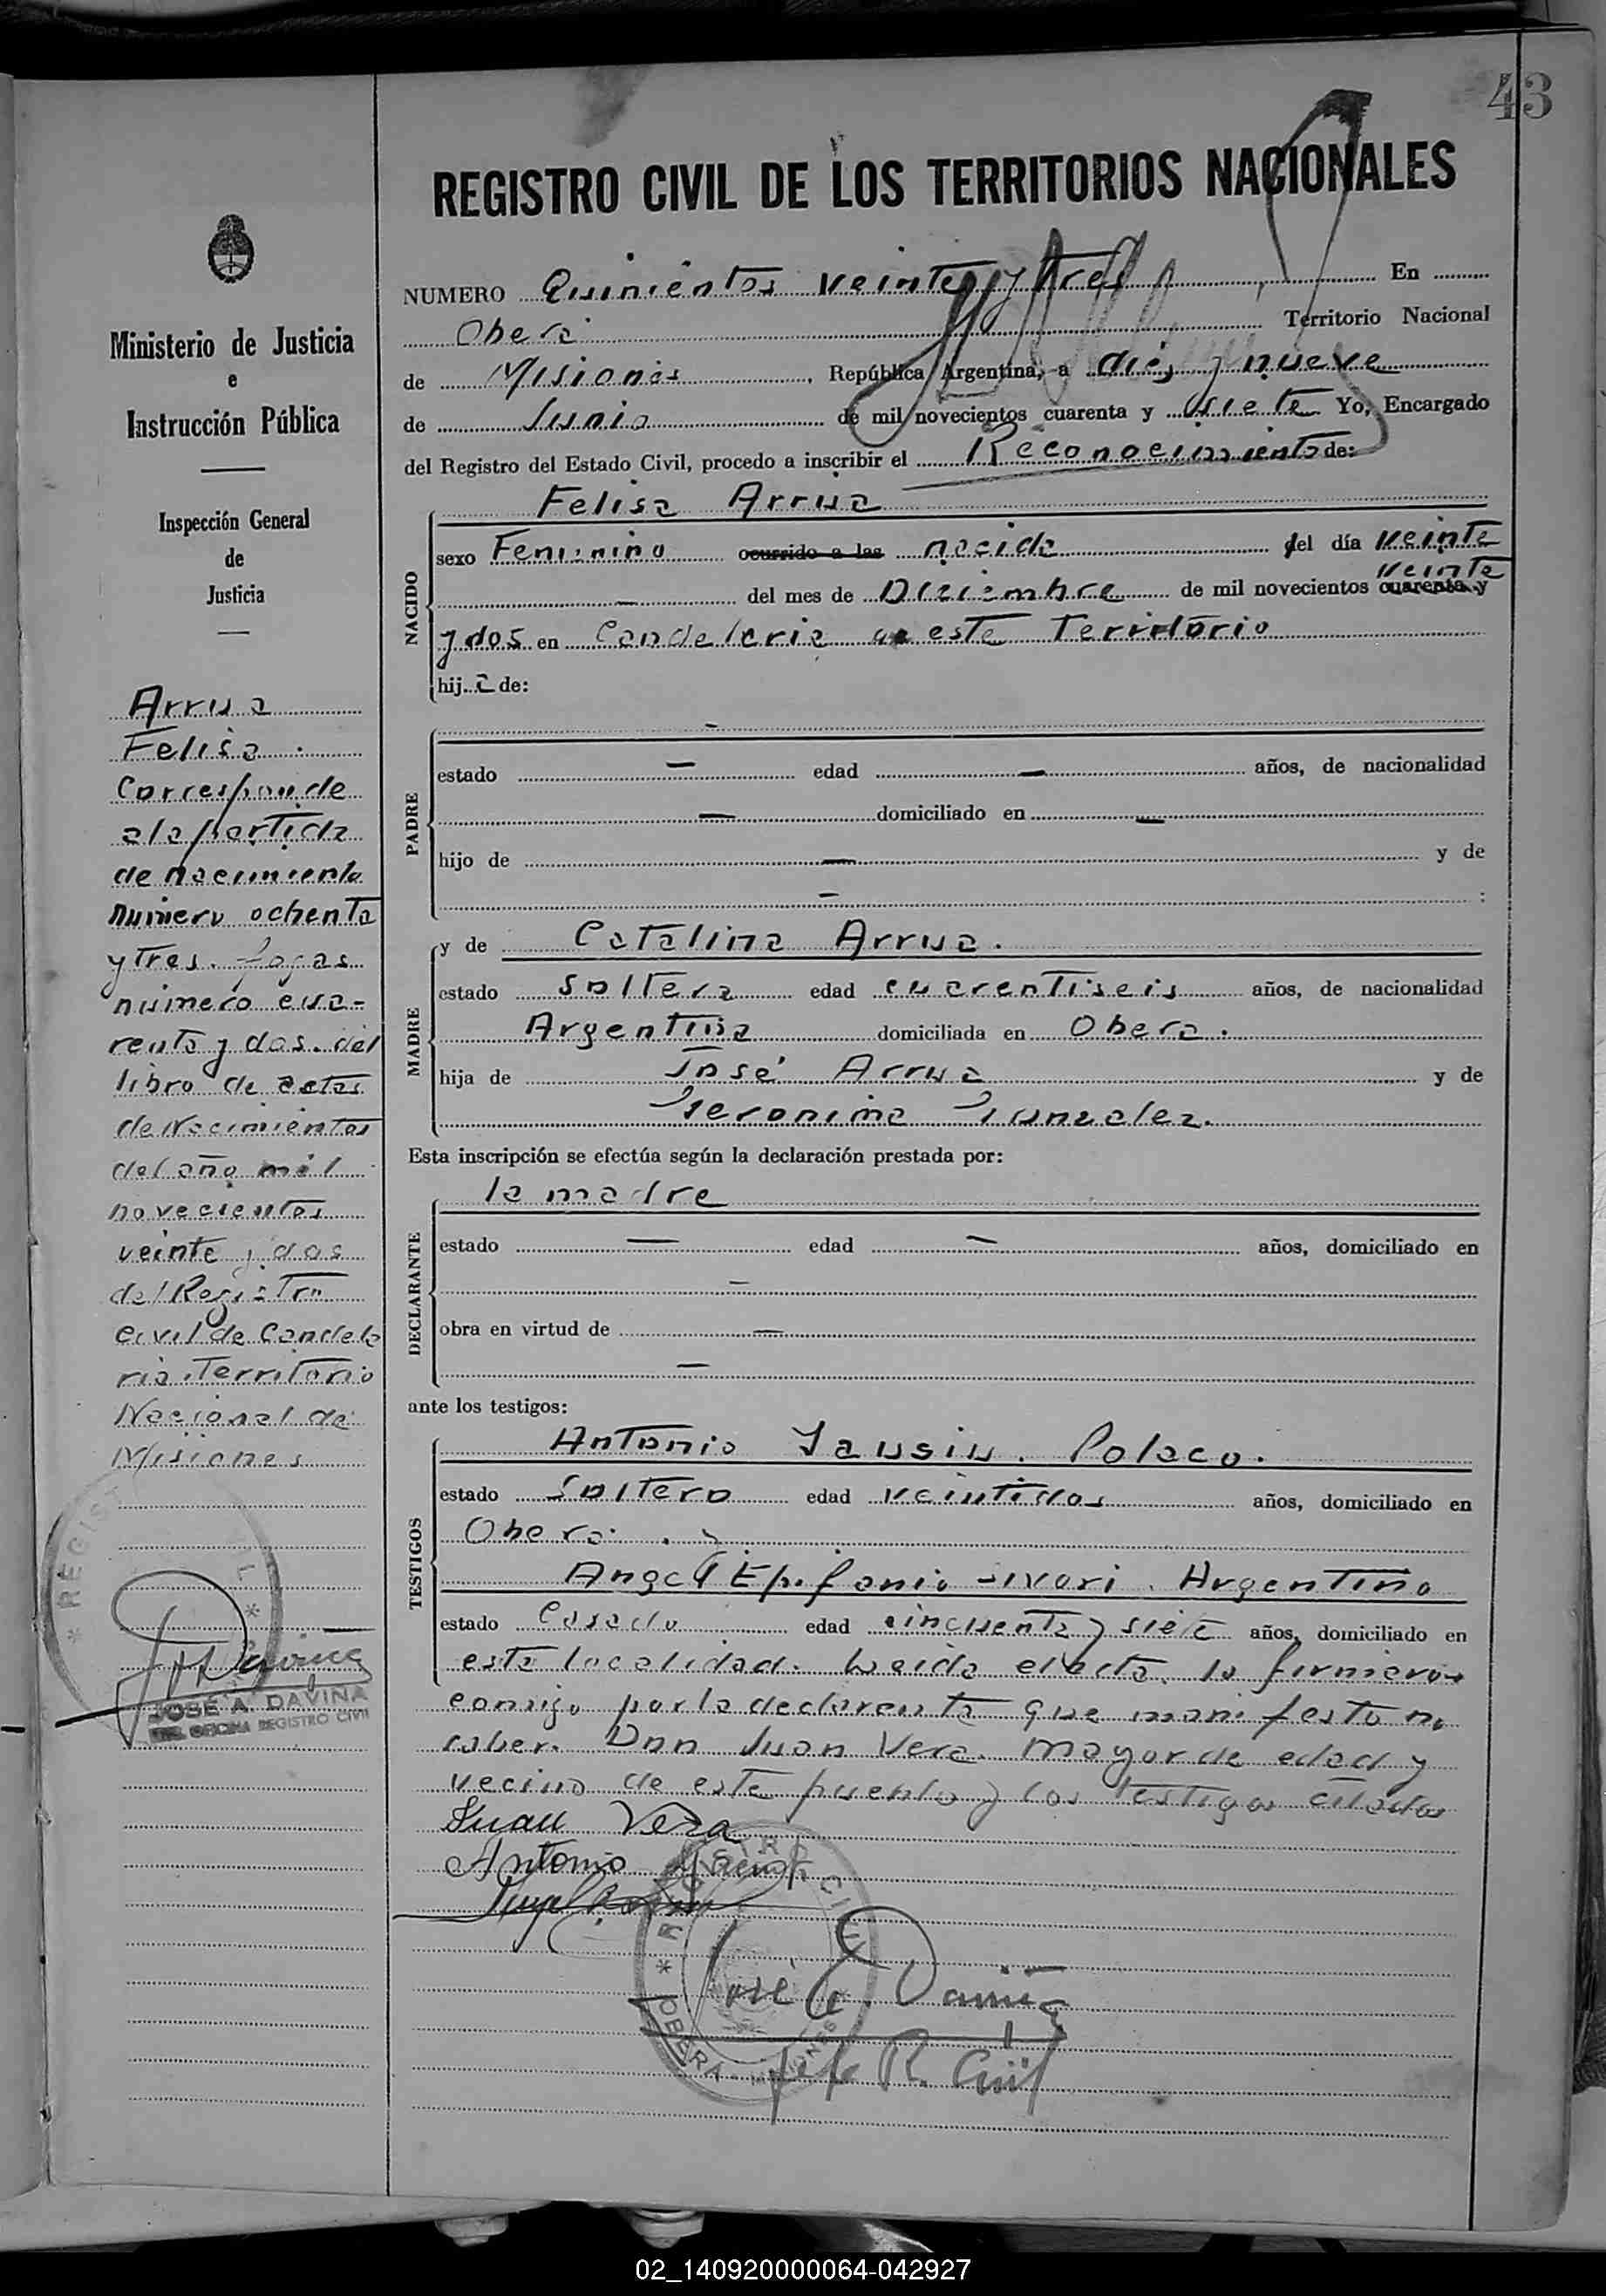 43
REGISTRO CIVIL DE LOS TERRITORIOS NACIONALES
Ministerio de Justicia
e
Instrucción Pública
Inspección General
de
Justicia
Arrua
Felisa.
Corresponde
a la partida
de nacimiento
numero ochenta
y tres. fojas
numero cua-
renta y dos. del
libro de actas
de Nacimientos
del año mil
novecientos
veinte y dos
del Registro
civil de Candela
ria. Territorio
Nacional de
Misiones
JOSÉ A. DAVIÑA
OFICINA REGISTRO CIVIL
NUMERO Quinientos veinte y tres En
Obera Territorio Nacional
de Misiones, República Argentina, a diez y nueve
de Junio de mil novecientos cuarenta y siete Yo, Encargado
del Registro del Estado Civil, procedo a inscribir el Reconocimiento de:
Felisa Arrua
NACIDO
sexo Femenino ocurrido a las nacida del día veinte
veinte
del mes de Diciembre de mil novecientos cuarenta y
y dos en Candelaria de este Territorio
hija de:
PADRE
estado — edad — años, de nacionalidad
— domiciliado en —
hijo de — y de
— :
MADRE
y de Catalina Arrua.
estado soltera edad cuarentiseis años, de nacionalidad
Argentina domiciliada en Obera.
hija de José Arrua y de
Geronima Gonzalez.
Esta inscripción se efectúa según la declaración prestada por:
DECLARANTE
la madre
estado — edad — años, domiciliado en
—
obra en virtud de —
—
ante los testigos:
TESTIGOS
Antonio Polaco.
estado Soltero edad veintidos años, domiciliado en
Obera.
Angel Epifanio Argentino
estado Casado edad cincuenta y siete años, domiciliado en
esta localidad. Leida el acta la firmaron
conmigo por la declarante que manifesto no
saber. Don Juan Vera. mayor de edad y
vecino de este pueblo y los testigos citados
Juan Vera
Antonio
REGISTRO CIVIL
OBERA - MISIONES
José A. Daviña
Jefe R. Civil
02_140920000064-042927